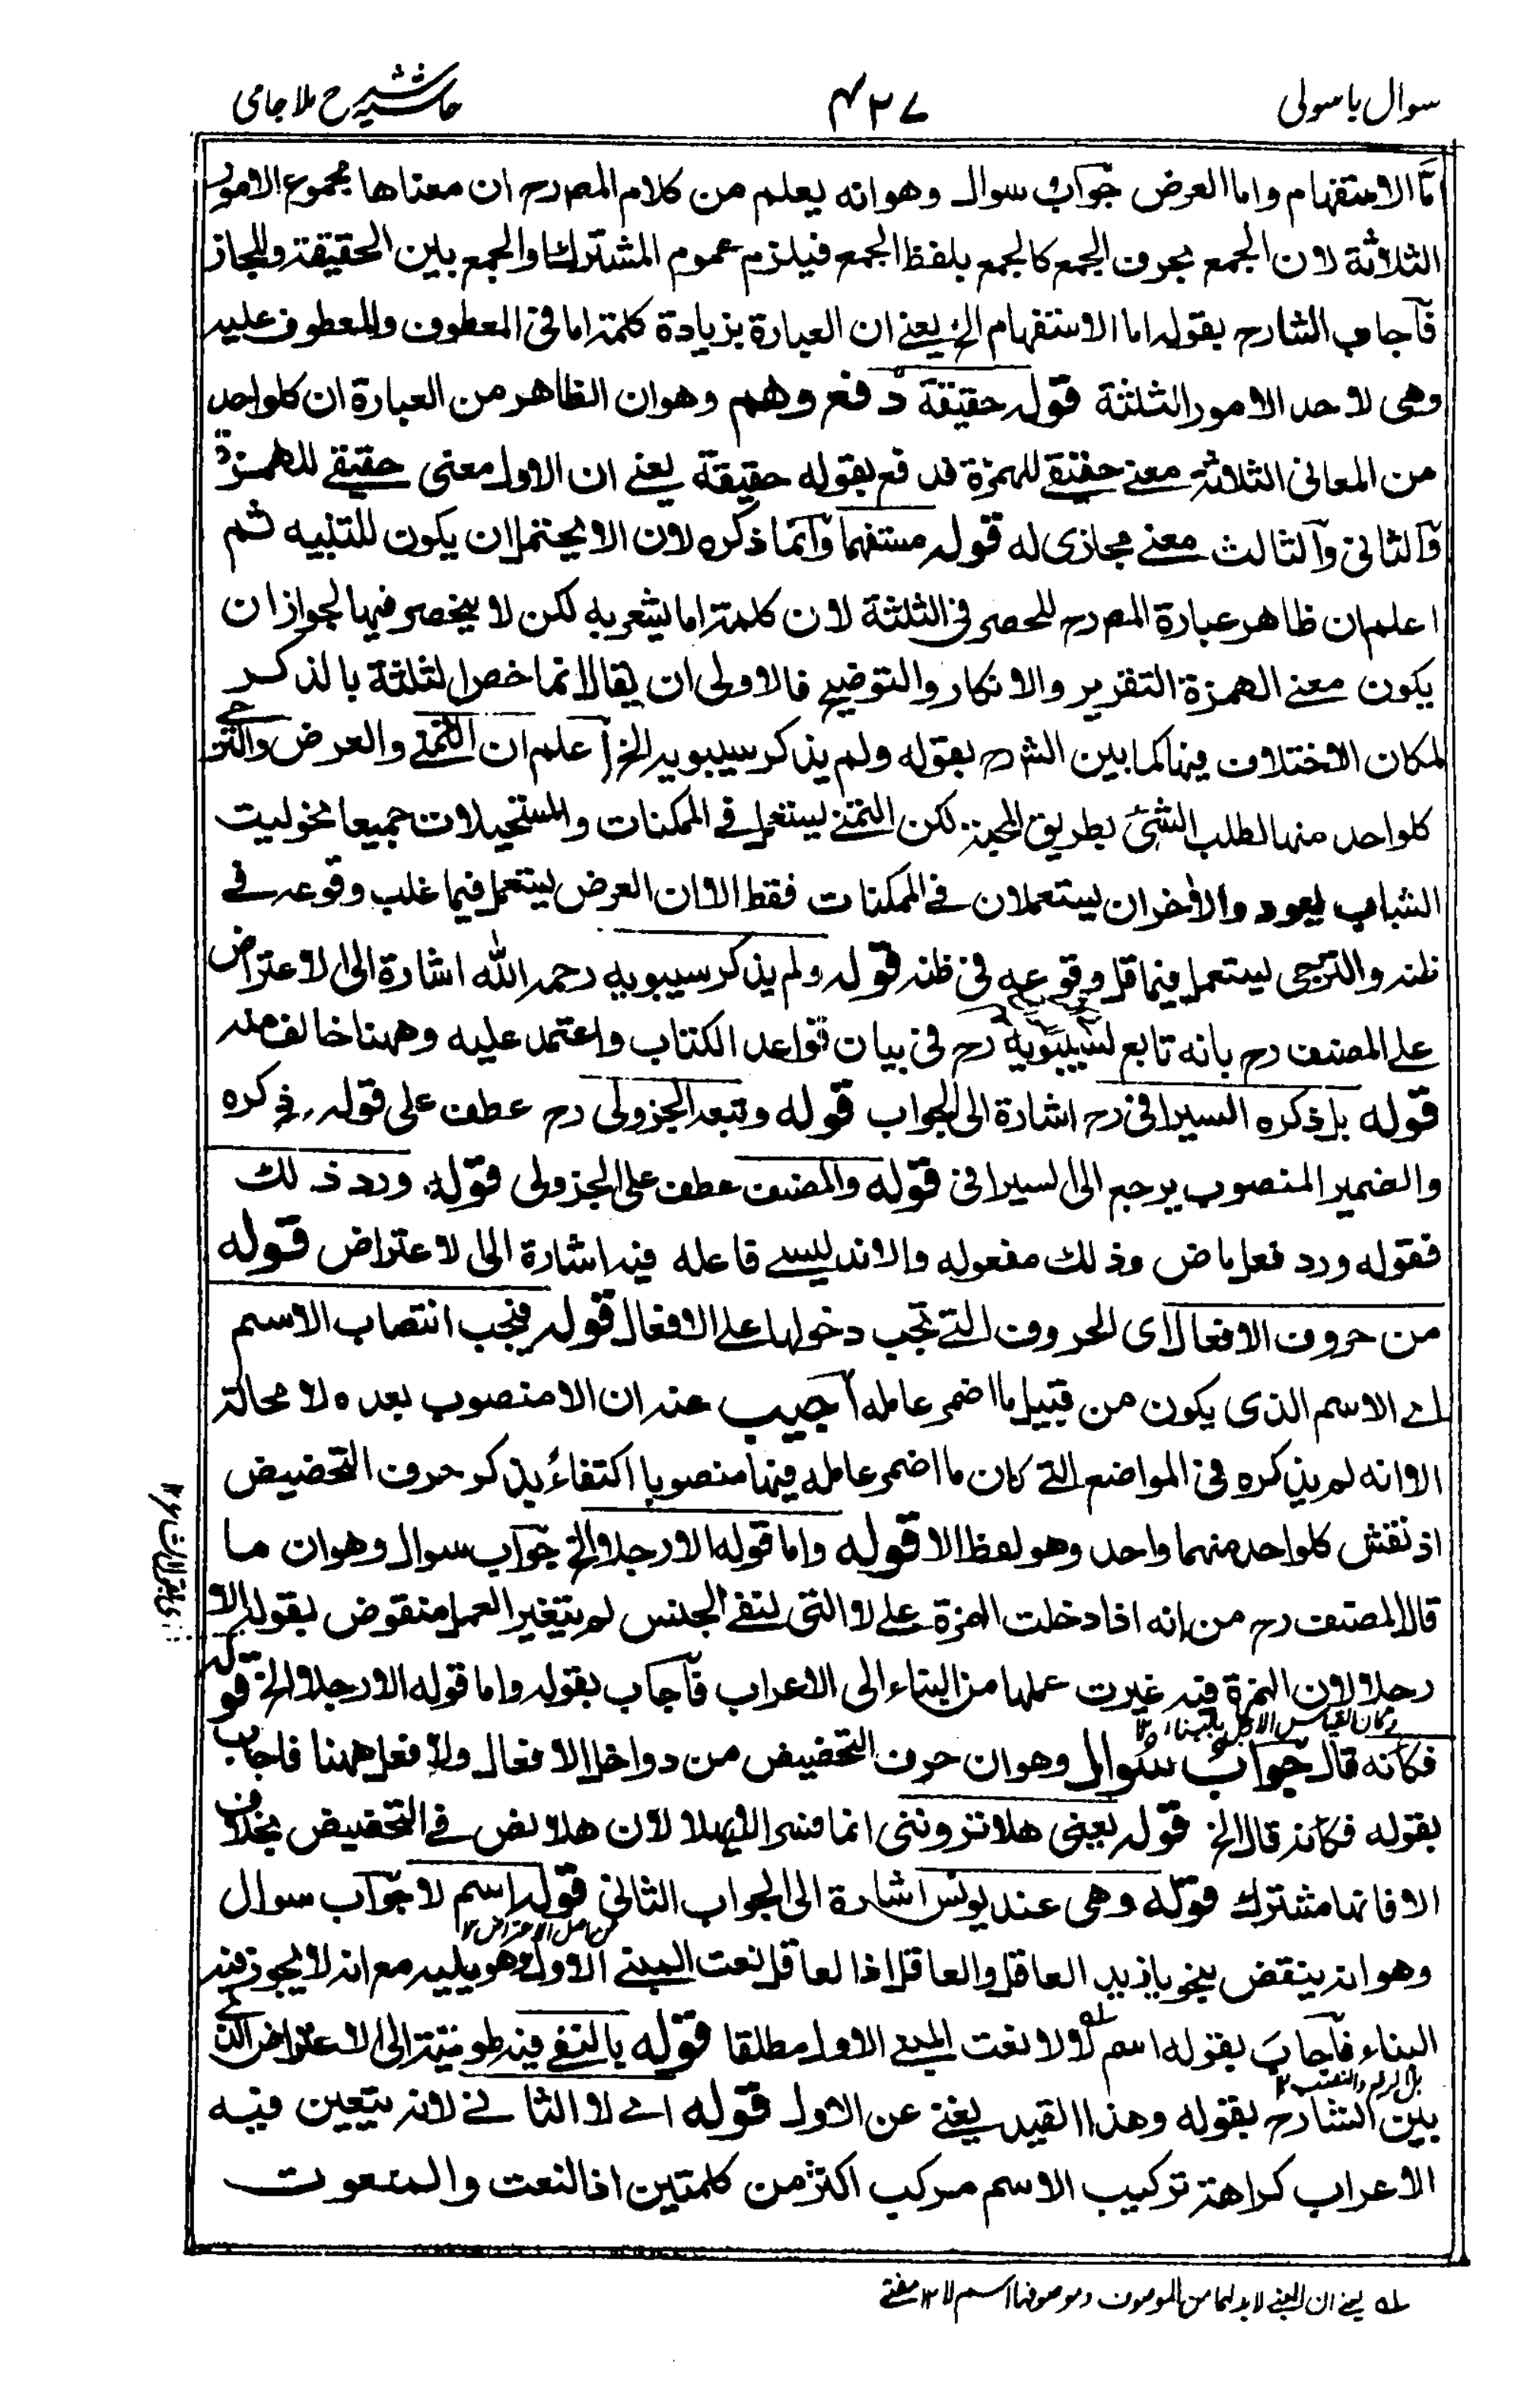 سوال باسولی
۴۲۷
حاشیہ شرح ملا جامی
اما الاستفهام واما العرض جواب سوال وهوانه يعلم من كلام المصرح ان معناها مجموع الامور
الثلاثة لان الجمع بحرف الجمع كالجمع بلفظ الجمع فيلزم عموم المشترك والجمع بين الحقيقة والمجاز
فآجاب الشارح بقوله اما الاستفهام الخ يعنے ان العبارة بزيادة كلمة اما فى المعطوف والمعطوف عليه
وهى لاحد الامور الثلثة قوله حقيقة دفع وهم وهوان الظاهر من العبارة ان كلواحد
من المعانى الثلاثة معنے حقيقے للهمزة فدفع بقوله حقيقة يعنے ان الاول معنى حقيقے للهمزة
وآلثانى وآلثالث معنے مجازى له قوله مستفهما وآنما ذكره لان الا يحتمل ان يكون للتنبيه ثم
اعلم ان ظاهر عبارة المصرح للحصر فى الثلثة لان كلمة اما يشعر به لكن لا ينحصر فيها لجواز ان
يكون معنے الهمزة التقرير والانكار والتوضيح فالاولى ان يقال انما خصر الثلثة بالذكر
لمكان الاختلاف فيها كما بين الشرح بقوله ولم يذكر سيبويه الخ آعلم ان التمنے والعرض والترجے
كلواحد منها لطلب الشئ بطريق المحبة لكن التمنے يستعمل فے الممكنات والمستحيلات جميعا نحو ليت
الشباب يعود والاخران يستعملان فے الممكنات فقط الا ان العرض يستعمل فيما غلب وقوعه فے
ظنه والترجى يستعمل فيما قل وقوعه فى ظنه قوله ولم يذكر سيبويه رحمه الله اشارة الى الاعتراض
على المصنف رح بانه تابع لسيبويه رح فى بيان قواعد الكتاب واعتمد عليه وههنا خالف منه
قوله بل ذكره السيرافى رح اشارة الى الجواب قوله وتبعه الجزولى رح عطف على قوله ذكره
والضمير المنصوب يرجع الى السيرافى قوله والمصنف عطف على الجزولى قوله ورد ذلك
فقوله ورد فعل ماض وذلك مفعوله والاندليسے فاعله فيه اشارة الى الاعتراض قوله
من حروف الافعال اى الحروف التے تجب دخولها على الافعال قوله فيجب انتصاب الاسم
اے الاسم الذى يكون من قبيل ما اضمر عامله آجيب عنه ان الا منصوب بعده لا محالة
الا انه لم يذكره فى المواضع التے كان ما اضمر عامله فيها منصوبا اكتفاءً بذكر حرف التحضيض
اذ نقش كلواحد منهما واحد وهو لفظ الا قوله واما قوله الا رجلا الخ جواب سوال وهوان ما
قال المصنف رح من انه اذا دخلت الهمزة على لا التى لنفے الجنس لم يتغير العمل منقوض بقوله الا
رجلا لان الهمزة فيه غيرت عملها من البناء الى الاعراب فآجاب بقوله واما قوله الا رجلا الخ قوله
وكان القياس الا رجل بالبناء ۱۲
فكانه قال جواب سوال وهوان حرف التحضيض من دواخل الافعال ولا فعل ههنا فاجاب
بقوله فكانه قال الخ قوله يعنى هلا تزوننى انما فسر الا بهلا لان هلا نص فے التحضيض بخلاف
الا فانها مشترك قوله وهى عند يونس اشارة الى الجواب الثانى قوله اسم لا جواب سوال
عن اصل الاعتراض ۱۲
وهوانه ينقض بنحو يا زيد العاقل والعاقل اذ العاقل نعت المبنے الاول وهو يليه مع انه لا يجوز فيه
البناء فآجاب بقوله اسم لا لا نعت المبنے الاول مطلقا قوله بالنفے فيه طوئية الى الاعتراض الذے
بل الرفع والنصب ۱۲
بين الشارح بقوله وهذا القيد يغنے عن الاول قوله اے لا الثانے لانه يتعين فيه
الاعراب كراهة تركيب الاسم مركب اكثر من كلمتين اذ النعت والمنعوت
لہ یعنے ان المبنے لا بد لہا من الموصوف وموصوفہا اسم لا ۱۲ مفتے